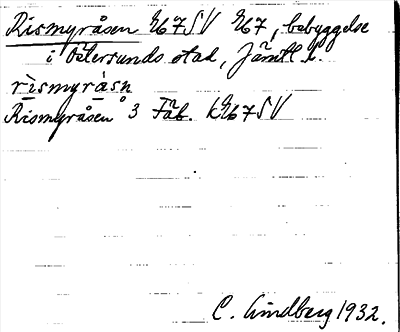 Rismyråsen 2667SV 2667, bebyggelse
i Östersunds stad, Jämtl l.
rìsmyràsn
Rismyråsen 3 Fäb. k2667SV
C. Lindberg 1932.